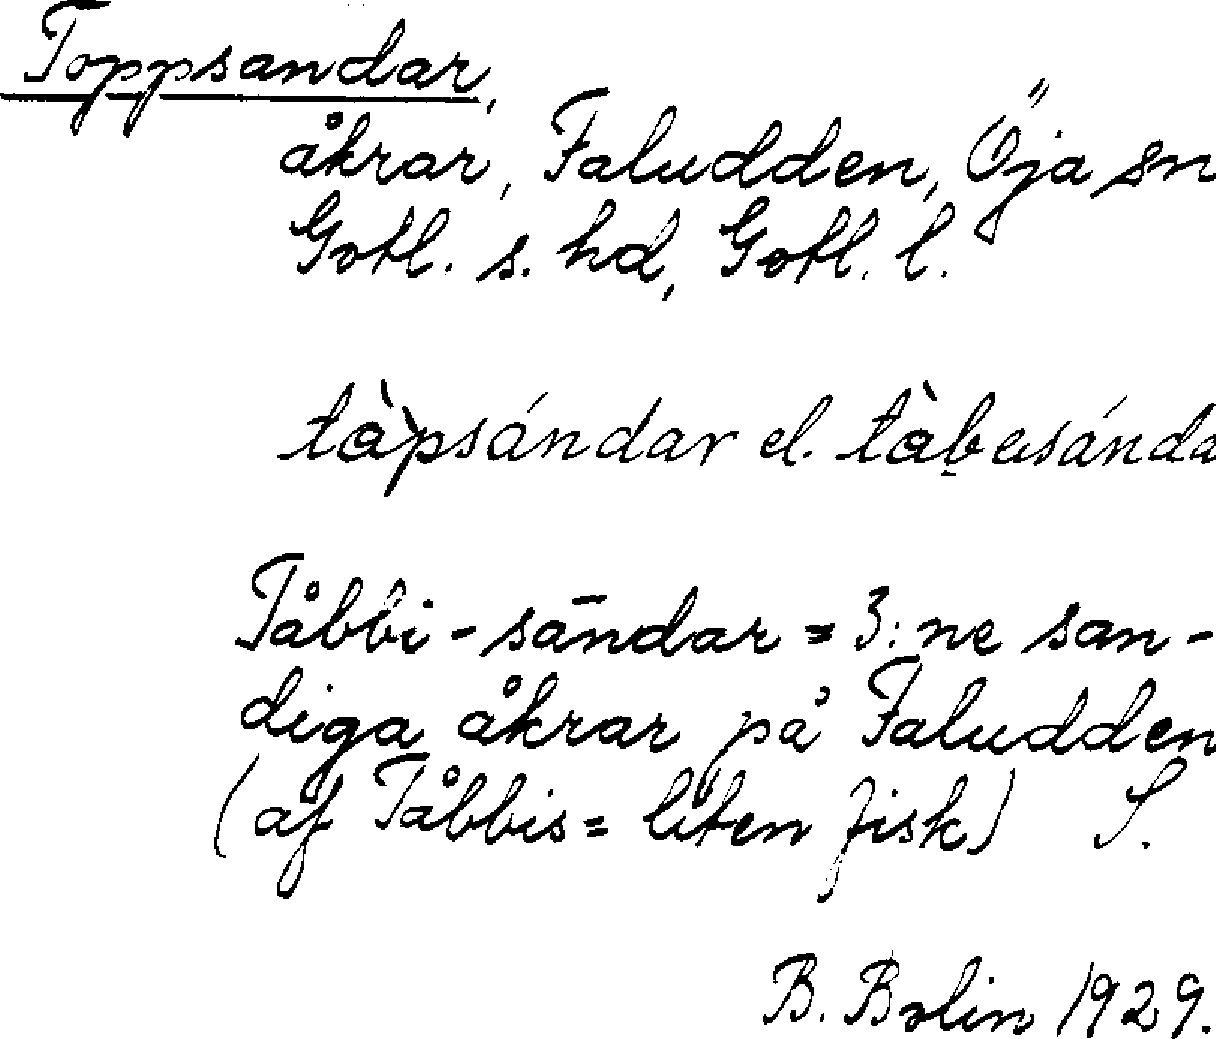 Toppsandar,
åkrar, Faludden, Öja sn
Gotl. s. hd, Gotl. l.
tàpsándar el. tàbusánda
Tåbbi-sāndar = 3:ne san-
diga åkrar på Faludden
(af Tåbbis = liten fisk) S.
B. Bolin 1929.